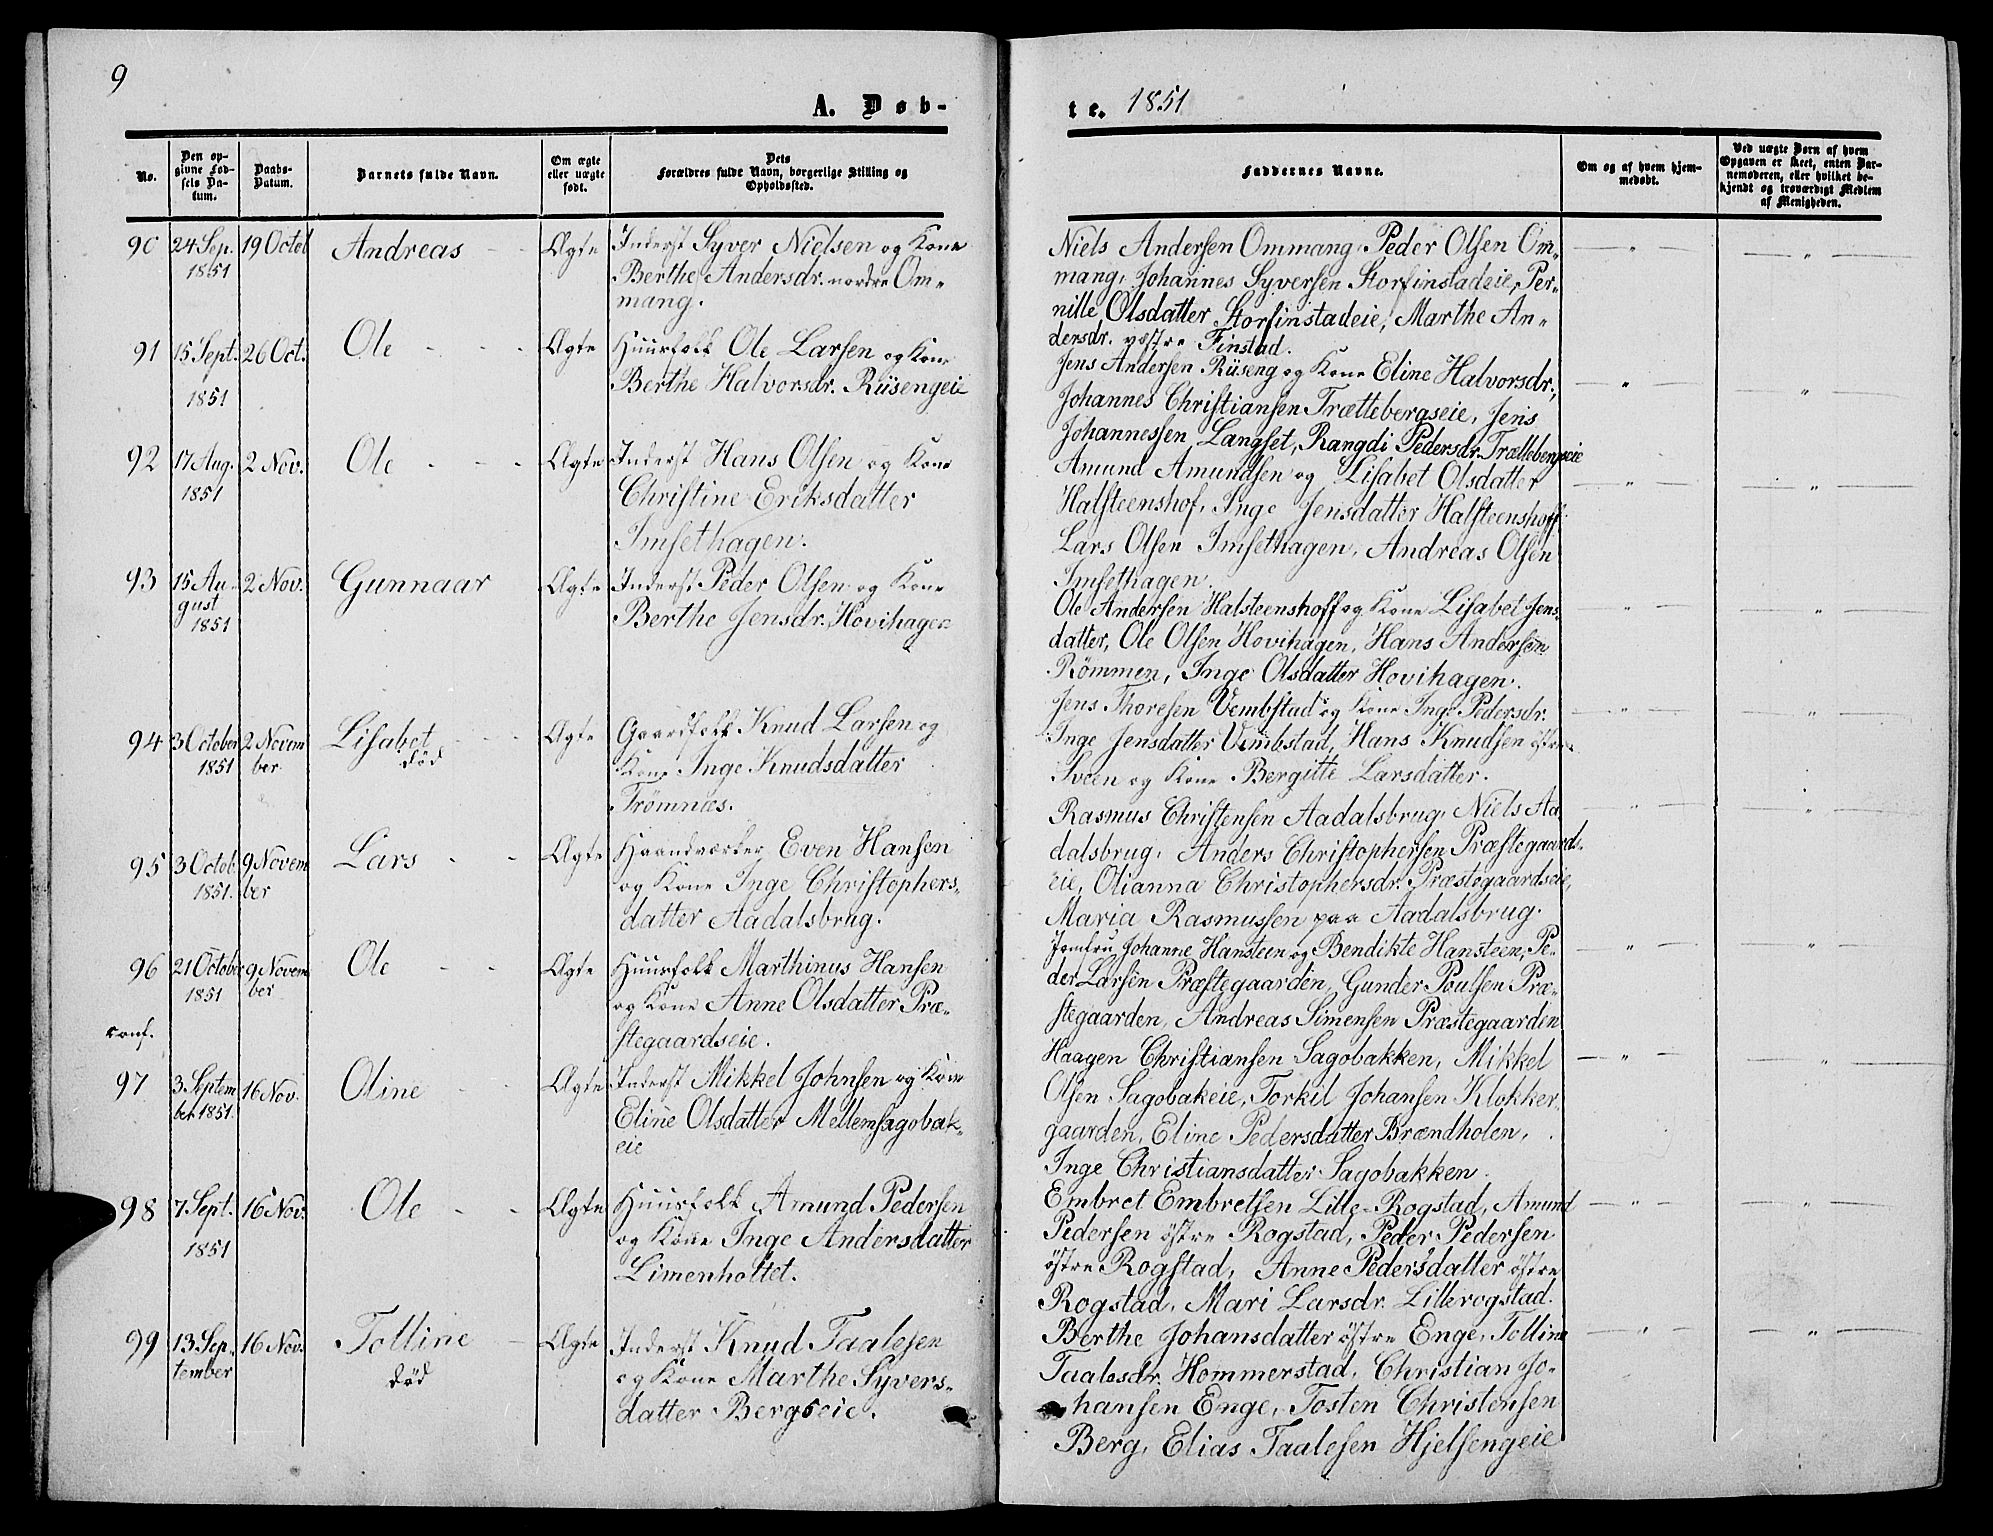 9
A. Døb-
te. 1851
No.
Den op-
givne Fød-
sels Da-
tum.
Daabs-
Datum.
Barnets fulde Navn.
Om ægte
eller uægte
født.
Dets
Forældres fulde Navn, borgerlige Stilling og
Opholdssted.
Faddernes Navne.
Om og af hvem hjem-
medøbt.
Ved uægte Børn af hvem
Opgaven er skeet, enten Bar-
nemoderen, eller hvilket be-
kjendt og troværdigt Medlem
af Menigheden.
90 24 Sep. 1851 19 Octob Andreas Ægte
Inderst Syver Nielsen og Kone
Berthe Andersdr. nordre Om-
mang.
Niels Andersen Ommang, Peder Olsen Om-
mang, Johannes Syversen Storfinstadeie, Per-
nille Olsdatter Storfinstadeie, Marthe An-
dersdr. vestre Finstad.
91 15 Sept. 1851 26 Oct. Ole Ægte
Huusfolk Ole Larsen og Kone
Berthe Halvorsdr. Rüsengeie
Jens Andersen Rüseng og Kone Eline Halvorsdr.,
Johannes Christiansen Trættebergseie, Jens
Johannessen Langset, Rangdi Pedersdr. Trættebergseie
92 17 Aug. 1851 2 Nov. Ole Ægte
Inderst Hans Olsen og Kone
Christine Eriksdatter
Imsethagen.
Amund Amundsen og Lisabet Olsdatter
Halsteenshof, Inge Jensdatter Halsteenshoff
Lars Olsen Imsethagen, Andreas Olsen
Imsethagen.
93 15 Au-
gust
1851 2 Nov. Gunnaar Ægte
Inderst Peder Olsen og Kone
Berthe Jensdr. Hovihagen
Ole Andersen Halsteenshoff og Kone Lisabet Jens-
datter, Ole Olsen Hovihagen, Hans Andersen
Römmen, Inge Olsdatter Hovihagen.
94 3 October
1851 2 Novem
ber Lisabet
död Ægte
Gaardfolk Knud Larsen og
Kone Inge Knudsdatter
Trømnæs.
Jens Thoresen Vembstad og Kone Inge Pedersdr.
Inge Jensdatter Vembstad, Hans Knudsen östre
Sveen og Kone Bergitte Larsdatter.
95 3 Octob.
1851. 9 Novem
ber Lars Ægte
Haandværker Even Hansen
og Kone Inge Christophers-
datter Aadalsbrug.
Rasmus Christensen Aadalsbrug, Niels Aa
dalsbrug, Anders Christophersen Præstegaards-
eie, Olianna Christophersdr. Præstegaardseie,
Maria Rasmussen paa Aadalsbrug.
96 21 October
1851 9 Novem
ber Ole Ægte
conf.
Huusfolk Marthinus Hansen
og Kone Anne Olsdatter Præ-
stegaardseie.
Jomfru Johanne Hansteen og Bendikte Hansteen, Pe-
der Larsen Præstegaarden, Gunder Poulsen Præ-
stegaarden, Andreas Simensen Præstegaarden
97 3. Septem
ber 1851. 16 Nov. Oline Ægte
Inderst Mikkel Johnsen og Kone
Eline Olsdatter Mellemsagobak-
eie
Haagen Christiansen Sagobakken, Mikkel
Olsen Sagobakeie, Torkil Johansen Klokker-
gaarden, Eline Pedersdatter Brændholen,
Inge Christiansdatter Sagobakken.
98 7 Sept.
1851 16 Nov. Ole Ægte
Huusfolk Amund Pedersen
og Kone Inge Andersdatter
Limenholtet.
Embret Embretsen Lille-Rogstad, Amund
Pedersen östre Rogstad, Peder Pedersen
östre Rogstad, Anne Pedersdatter östre
Rogstad, Mari Larsdr. Lillerogstad.
99 13. Sep-
tember 16 Nov. Tolline
död Ægte
Inderst Knud Taalesen
og Kone Marthe Syvers-
datter Bergseie.
Berthe Johansdatter östre Enge, Tolline
Taalesdr. Hommerstad, Christian Jo-
hansen Enge, Tosten Christensen
Berg, Elias Taalesen Hjelsengeie